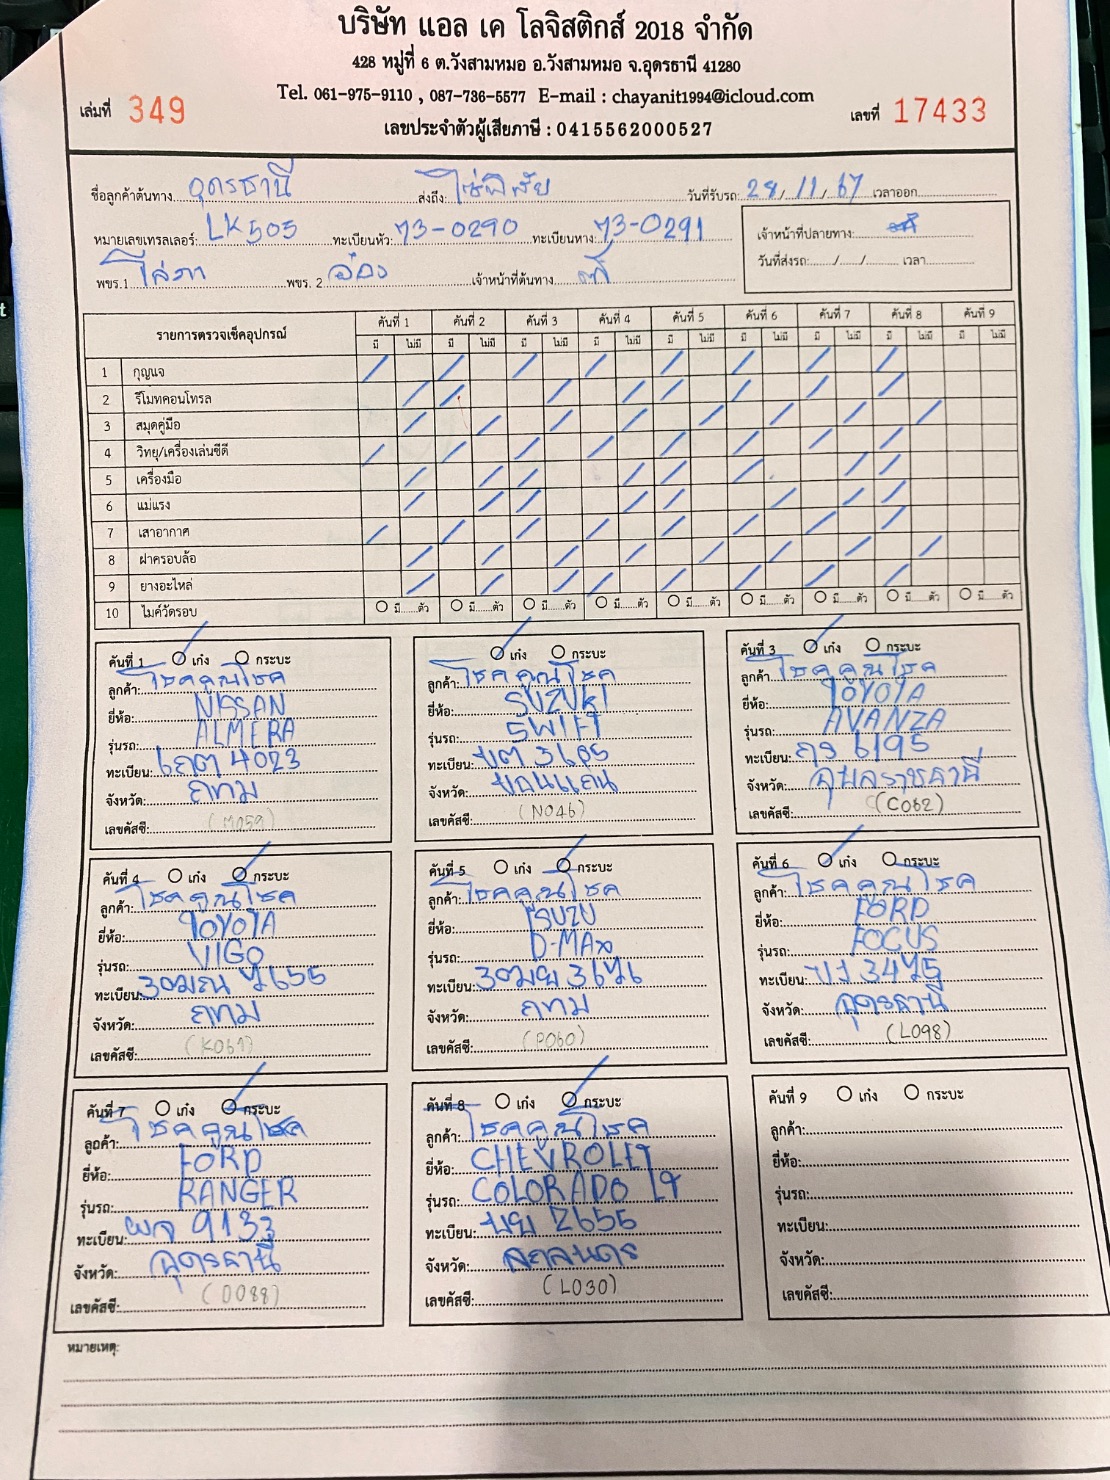 บริษัท แอล เค โลจิสติกส์ 2018 จำกัด
428 หมู่ที่ 6 ต.วังสามหมอ อ.วังสามหมอ จ.อุดรธานี 41280
Tel. 061-975-9110 , 087-736-5577 E-mail : chayanit1994@icloud.com
เล่มที่ 349 เลขที่ 17433
เลขประจำตัวผู้เสียภาษี : 0415562000527
ชื่อลูกค้าต้นทาง อุดรธานี ส่งถึง: วันที่รับรถ: 28/11/67 เวลาออก
หมายเลขเทรลเลอร์: LK505 ทะเบียนหัว: 73-0290 ทะเบียนหาง: 73-0291
เจ้าหน้าที่ปลายทาง:
วันที่ส่งรถ:....../....../...... เวลา
พขร.1 พขร. 2 อ๋อง เจ้าหน้าที่ต้นทาง
รายการตรวจเช็คอุปกรณ์ คันที่ 1 คันที่ 2 คันที่ 3 คันที่ 4 คันที่ 5 คันที่ 6 คันที่ 7 คันที่ 8 คันที่ 9
มี ไม่มี มี ไม่มี มี ไม่มี มี ไม่มี มี ไม่มี มี ไม่มี มี ไม่มี มี ไม่มี มี ไม่มี
1 กุญแจ
2 รีโมทคอนโทรล
3 สมุดคู่มือ
4 วิทยุ/เครื่องเล่นซีดี
5 เครื่องมือ
6 แม่แรง
7 เสาอากาศ
8 ฝาครอบล้อ
9 ยางอะไหล่
10 ไมค์วัดรอบ มี......ตัว มี......ตัว มี......ตัว มี......ตัว มี......ตัว มี......ตัว มี......ตัว มี......ตัว มี......ตัว
คันที่ 1 เก๋ง กระบะ
ลูกค้า: โชคคูณโชค
ยี่ห้อ: NISSAN
รุ่นรถ: ALMERA
ทะเบียน: 4023
จังหวัด: กทม
เลขคัสซี: (M059)
เก๋ง กระบะ
ลูกค้า: โชคคูณโชค
ยี่ห้อ: SUZUKI
รุ่นรถ: SWIFT
ทะเบียน:
จังหวัด: ขอนแก่น
เลขคัสซี: (N046)
คันที่ 3 เก๋ง กระบะ
ลูกค้า: โชคคูณโชค
ยี่ห้อ: TOYOTA
รุ่นรถ: AVANZA
ทะเบียน: 6195
จังหวัด: อุบลราชธานี
เลขคัสซี: (C062)
คันที่ 4 เก๋ง กระบะ
ลูกค้า: โชคคูณโชค
ยี่ห้อ: TOYOTA
รุ่นรถ: VIGO
ทะเบียน: 7655
จังหวัด: กทม
เลขคัสซี: (K061)
คันที่ 5 เก๋ง กระบะ
ลูกค้า: โชคคูณโชค
ยี่ห้อ: ISUZU
รุ่นรถ: D-MAX
ทะเบียน: 3676
จังหวัด: กทม
เลขคัสซี: (P060)
คันที่ 6 เก๋ง กระบะ
ลูกค้า: โชคคูณโชค
ยี่ห้อ: FORD
รุ่นรถ: FOCUS
ทะเบียน: 3475
จังหวัด: อุดรธานี
เลขคัสซี: (L098)
คันที่ 7 เก๋ง กระบะ
ลูกค้า: โชคคูณโชค
ยี่ห้อ: FORD
รุ่นรถ: RANGER
ทะเบียน: ผจ 9133
จังหวัด: อุดรธานี
เลขคัสซี: (O088)
คันที่ 8 เก๋ง กระบะ
ลูกค้า: โชคคูณโชค
ยี่ห้อ: CHEVROLET
รุ่นรถ: COLORADO LT
ทะเบียน: 2655
จังหวัด: สกลนคร
เลขคัสซี: (L030)
คันที่ 9 เก๋ง กระบะ
ลูกค้า:
ยี่ห้อ:
รุ่นรถ:
ทะเบียน:
จังหวัด:
เลขคัสซี:
หมายเหตุ: